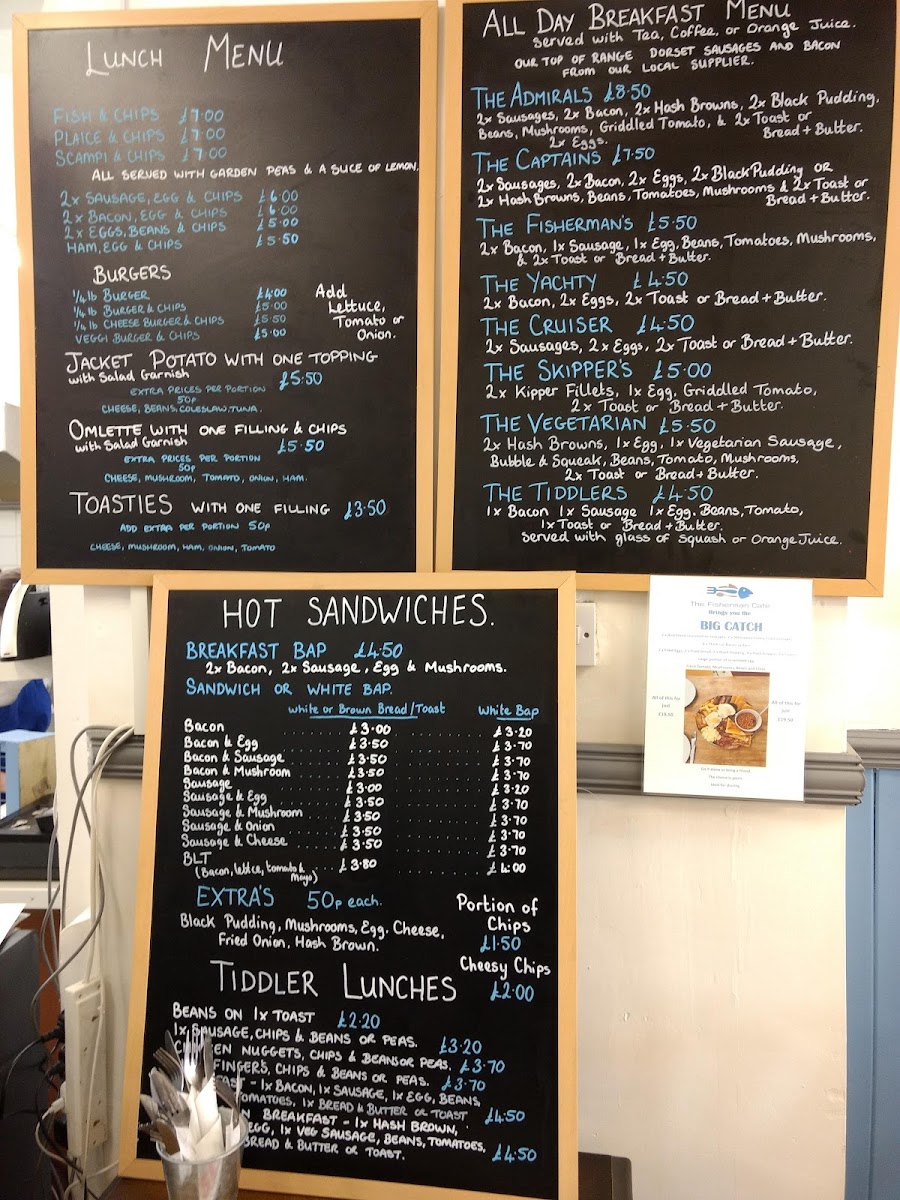 LUNCH MENU
FISH & CHIPS £7.00
PLAICE & CHIPS £7.00
SCAMPI & CHIPS £7.00
ALL SERVED WITH GARDEN PEAS & A SLICE OF LEMON.
2x SAUSAGE, EGG & CHIPS £6.00
2x BACON, EGG & CHIPS £6.00
2x EGGS, BEANS & CHIPS £5.00
HAM, EGG & CHIPS £5.50
BURGERS
1/4 lb BURGER £4.00
1/4 lb BURGER & CHIPS £5.00
1/4 lb CHEESE BURGER & CHIPS £5.50
VEGGI BURGER & CHIPS £5.00
Add
Lettuce,
Tomato or
Onion.
JACKET POTATO WITH ONE TOPPING
with Salad Garnish £5.50
EXTRA PRICES PER PORTION
50p
CHEESE, BEANS, COLESLAW, TUNA.
OMLETTE WITH ONE FILLING & CHIPS
with Salad Garnish £5.50
EXTRA PRICES PER PORTION
50p
CHEESE, MUSHROOM, TOMATO, ONION, HAM.
TOASTIES WITH ONE FILLING £3.50
ADD EXTRA PER PORTION 50p
CHEESE, MUSHROOM, HAM, ONION, TOMATO
ALL DAY BREAKFAST MENU
Served with Tea, Coffee, or Orange Juice.
OUR TOP OF RANGE DORSET SAUSAGES AND BACON
FROM OUR LOCAL SUPPLIER.
THE ADMIRALS £8.50
2x Sausages, 2x Bacon, 2x Hash Browns, 2x Black Pudding,
Beans, Mushrooms, Griddled Tomato, & 2x Toast or
Bread + Butter.
2x Eggs.
THE CAPTAINS £7.50
2x Sausages, 2x Bacon, 2x Eggs, 2x Black Pudding OR
2x Hash Browns, Beans, Tomatoes, Mushrooms & 2x Toast or
Bread + Butter.
THE FISHERMAN'S £5.50
2x Bacon, 1x Sausage, 1x Egg, Beans, Tomatoes, Mushrooms,
& 2x Toast or Bread + Butter.
THE YACHTY £4.50
2x Bacon, 2x Eggs, 2x Toast or Bread + Butter.
THE CRUISER £4.50
2x Sausages, 2x Eggs, 2x Toast or Bread + Butter.
THE SKIPPER'S £5.00
2x Kipper Fillets, 1x Egg, Griddled Tomato,
2x Toast or Bread + Butter.
THE VEGETARIAN £5.50
2x Hash Browns, 1x Egg, 1x Vegetarian Sausage,
Bubble & Squeak, Beans, Tomato, Mushrooms,
2x Toast or Bread + Butter.
THE TIDDLERS £4.50
1x Bacon 1x Sausage 1x Egg. Beans, Tomato,
1x Toast or Bread + Butter.
Served with glass of Squash or Orange Juice.
HOT SANDWICHES.
BREAKFAST BAP £4.50
2x Bacon, 2x Sausage, Egg & Mushrooms.
SANDWICH OR WHITE BAP.
White or Brown Bread/Toast White Bap
Bacon £3.00 £3.20
Bacon & Egg £3.50 £3.70
Bacon & Sausage £3.50 £3.70
Bacon & Mushroom £3.50 £3.70
Sausage £3.00 £3.20
Sausage & Egg £3.50 £3.70
Sausage & Mushroom £3.50 £3.70
Sausage & Onion £3.50 £3.70
Sausage & Cheese £3.50 £3.70
BLT £3.80 £4.00
(Bacon, lettce, tomato &
Mayo)
EXTRA'S 50p each.
Black Pudding, Mushrooms, Egg. Cheese,
Fried Onion, Hash Brown.
Portion of
Chips
£1.50
Cheesy Chips
£2.00
TIDDLER LUNCHES
BEANS ON 1x TOAST £2.20
1x SAUSAGE, CHIPS & BEANS OR PEAS. £3.20
NUGGETS, CHIPS & BEANS OR PEAS. £3.70
FINGERS, CHIPS & BEANS OR PEAS. £3.70
- 1x BACON, 1x SAUSAGE, 1x EGG, BEANS
TOMATOES, 1x BREAD & BUTTER OR TOAST £4.50
BREAKFAST - 1x HASH BROWN,
EGG, 1x VEG SAUSAGE, BEANS, TOMATOES,
BREAD & BUTTER OR TOAST. £4.50
The Fisherman Cafe
Brings you the
BIG CATCH
All of this for
just
£19.50
All of this for
just
£19.50